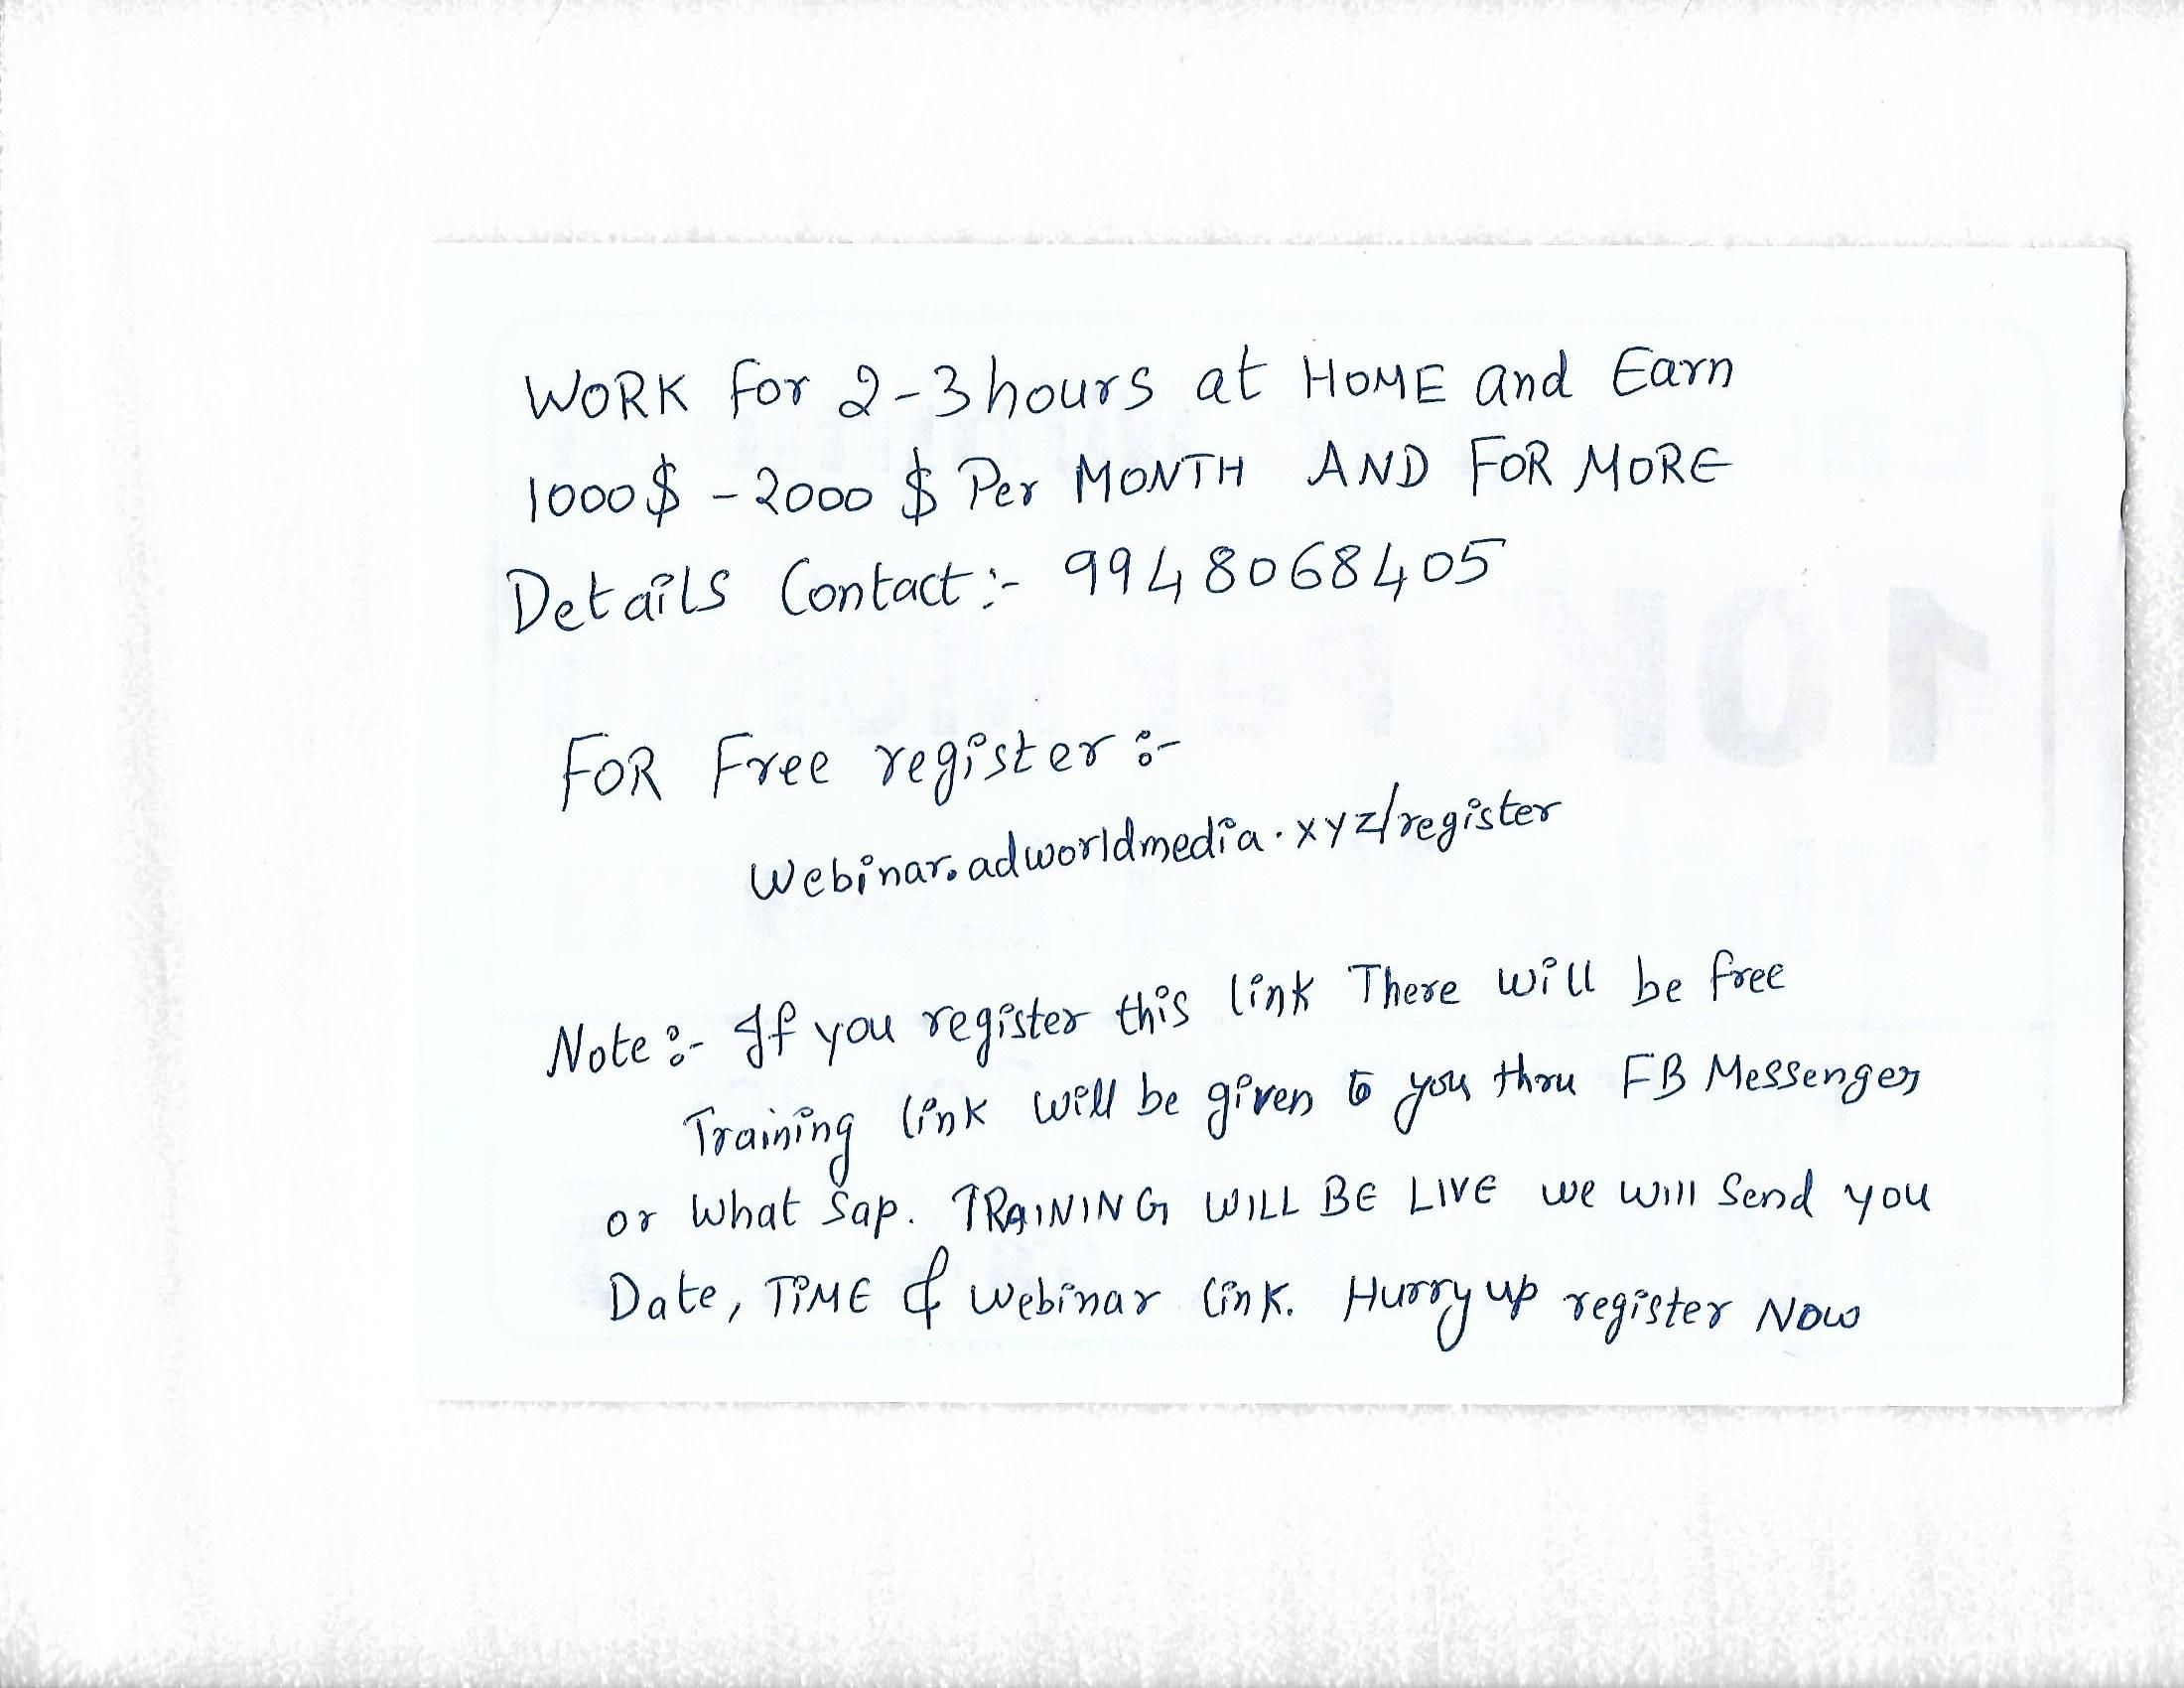 WORK For 2-3 hours at HOME and Earn
1000$ - 2000 $ Per MONTH AND FOR MORE
Details Contact :- 9948068405
FOR Free register :-
Webinar.adworldmedia.xyz/register
Note :- If you register this link There will be free
Training link will be given to you thru FB Messenger
or What sap. TRAINING WILL BE LIVE we will Send you
Date, TiME & webinar link. Hurry up register Now
10K Per Month